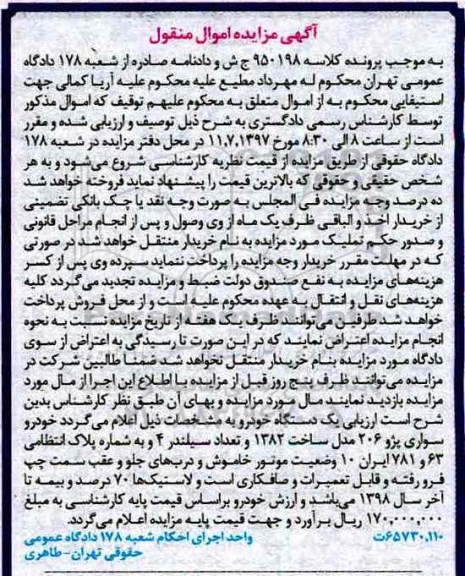 آگهی مزایده اموال منقول
به موجب پرونده کلاسه ۹۵۰۱۹۸ ج ش و دادنامه صادره از شعبه ۱۷۸ دادگاه
عمومی تهران محکوم له مهرداد مطیع علیه محکوم علیه آریا کمالی جهت
استیفایی محکوم به از اموال متعلق به محکوم علیهم توقیف که اموال مذکور
توسط کارشناس رسمی دادگستری به شرح ذیل توصیف و ارزیابی شده و مقرر
است از ساعت ۸ الی ۸:۳۰ مورخ ۱۱,۷,۱۳۹۷ در محل دفتر مزایده در شعبه ۱۷۸
دادگاه حقوقی از طریق مزایده از قیمت نظریه کارشناسی شروع می‌شود و به هر
شخص حقیقی و حقوقی که بالاترین قیمت را پیشنهاد نماید فروخته خواهد شد
ده درصد وجه مزایده فی المجلس به صورت وجه نقد یا چک بانکی تضمینی
از خریدار اخذ و الباقی ظرف یک ماه از وی وصول و پس از انجام مراحل قانونی
و صدور حکم تملیک مورد مزایده به نام خریدار منتقل خواهد شد در صورتی
که در مهلت مقرر خریدار وجه مزایده را پرداخت ننماید سپرده وی پس از کسر
هزینه‌های مزایده به نفع صندوق دولت ضبط و مزایده تجدید می‌گردد کلیه
هزینه‌های نقل و انتقال به عهده محکوم علیه است و از محل فروش پرداخت
خواهد شد طرفین می‌توانند ظرف یک هفته از تاریخ مزایده نسبت به نحوه
انجام مزایده اعتراض نمایند که در این صورت تا رسیدگی به اعتراض از سوی
دادگاه مورد مزایده بنام خریدار منتقل نخواهد شد ضمنا طالبین شرکت در
مزایده می‌توانند ظرف پنج روز قبل از مزایده با اطلاع این اجرا از مال مورد
مزایده بازدید نمایند مال مورد مزایده و بهای آن طبق نظر کارشناس بدین
شرح است ارزیابی یک دستگاه خودرو به مشخصات ذیل اعلام می‌گردد خودرو
سواری پژو ۲۰۶ مدل ساخت ۱۳۸۲ و تعداد سیلندر ۴ و به شماره پلاک انتظامی
۶۳ و ۷۸۱ ایران ۱۰ وضعیت موتور خاموش و درب‌های جلو و عقب سمت چپ
فرو رفته و قابل تعمیرات و صافکاری است و لاستیک‌ها ۷۰ درصد و بیمه تا
آخر سال ۱۳۹۸ می‌باشد و ارزش خودرو براساس قیمت پایه کارشناسی به مبلغ
۱۷۰,۰۰۰,۰۰۰ ریال برآورد و جهت قیمت پایه مزایده اعلام می‌گردد.
واحد اجرای احکام شعبه ۱۷۸ دادگاه عمومی
حقوقی تهران-طاهری
۱۱۰,۶۵۷۳۰ت